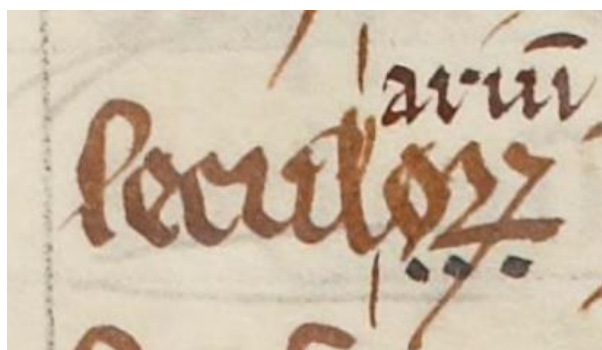 ariū
ſeculoꝝ